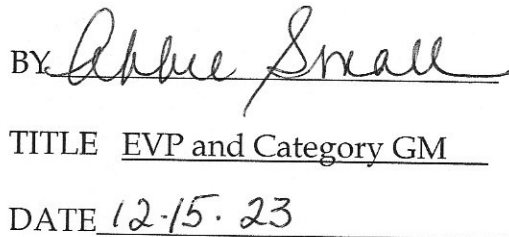 BY Abbie Small
TITLE EVP and Category GM
DATE 12-15. 23